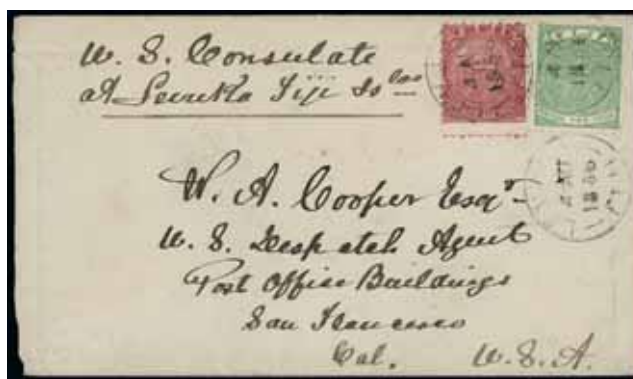 U. S. Consulate
at Levuka Fiji Islds
W. A. Cooper Esqr
U. S. Despatch Agent
Post Office Buildings
San Francisco
Cal. U. S. A.